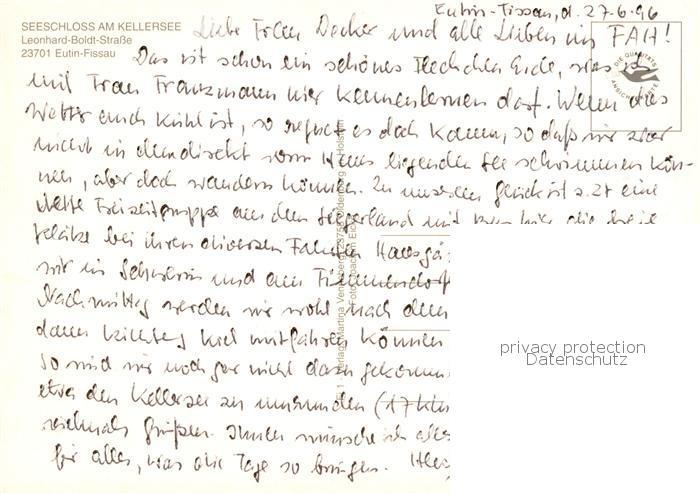 SEESCHLOSS AM KELLERSEE
Leonhard-Boldt-Straße
23701 Eutin-Fissau
Eutin-Fissau, d. 27.6.96
Liebe Frau Decker und alle Lieben im FAH!
Das ist schon ein schönes Fleckchen Erde, das ich
mit Frau Franzmann hier kennenlernen darf. Wenn das
Wetter auch kühl ist, so regnet es doch kaum, so daß wir zwar
nicht in dem direkt vorm Haus liegenden See schwimmen kön-
nen, aber doch wandern können. Zu unserem Glück ist z.Zt eine
nette Freizeitgruppe aus dem Siegerland mit hier, die
Plätze bei ihren diversen Fahrten
wir in Schwerin und am Timmendorf
Nachmittag werden wir wohl nach dem
dann Kiel mitfahren können
So sind wir noch gar nicht dazu gekommen
etwa den Kellersee zu umrunden (17 km
vielmals grüßen. Ihnen wünsche ich alles
für alles, was die Tage so bringen.
DIE QUALITÄTS
ANSICHTSKARTE
privacy protection
Datenschutz